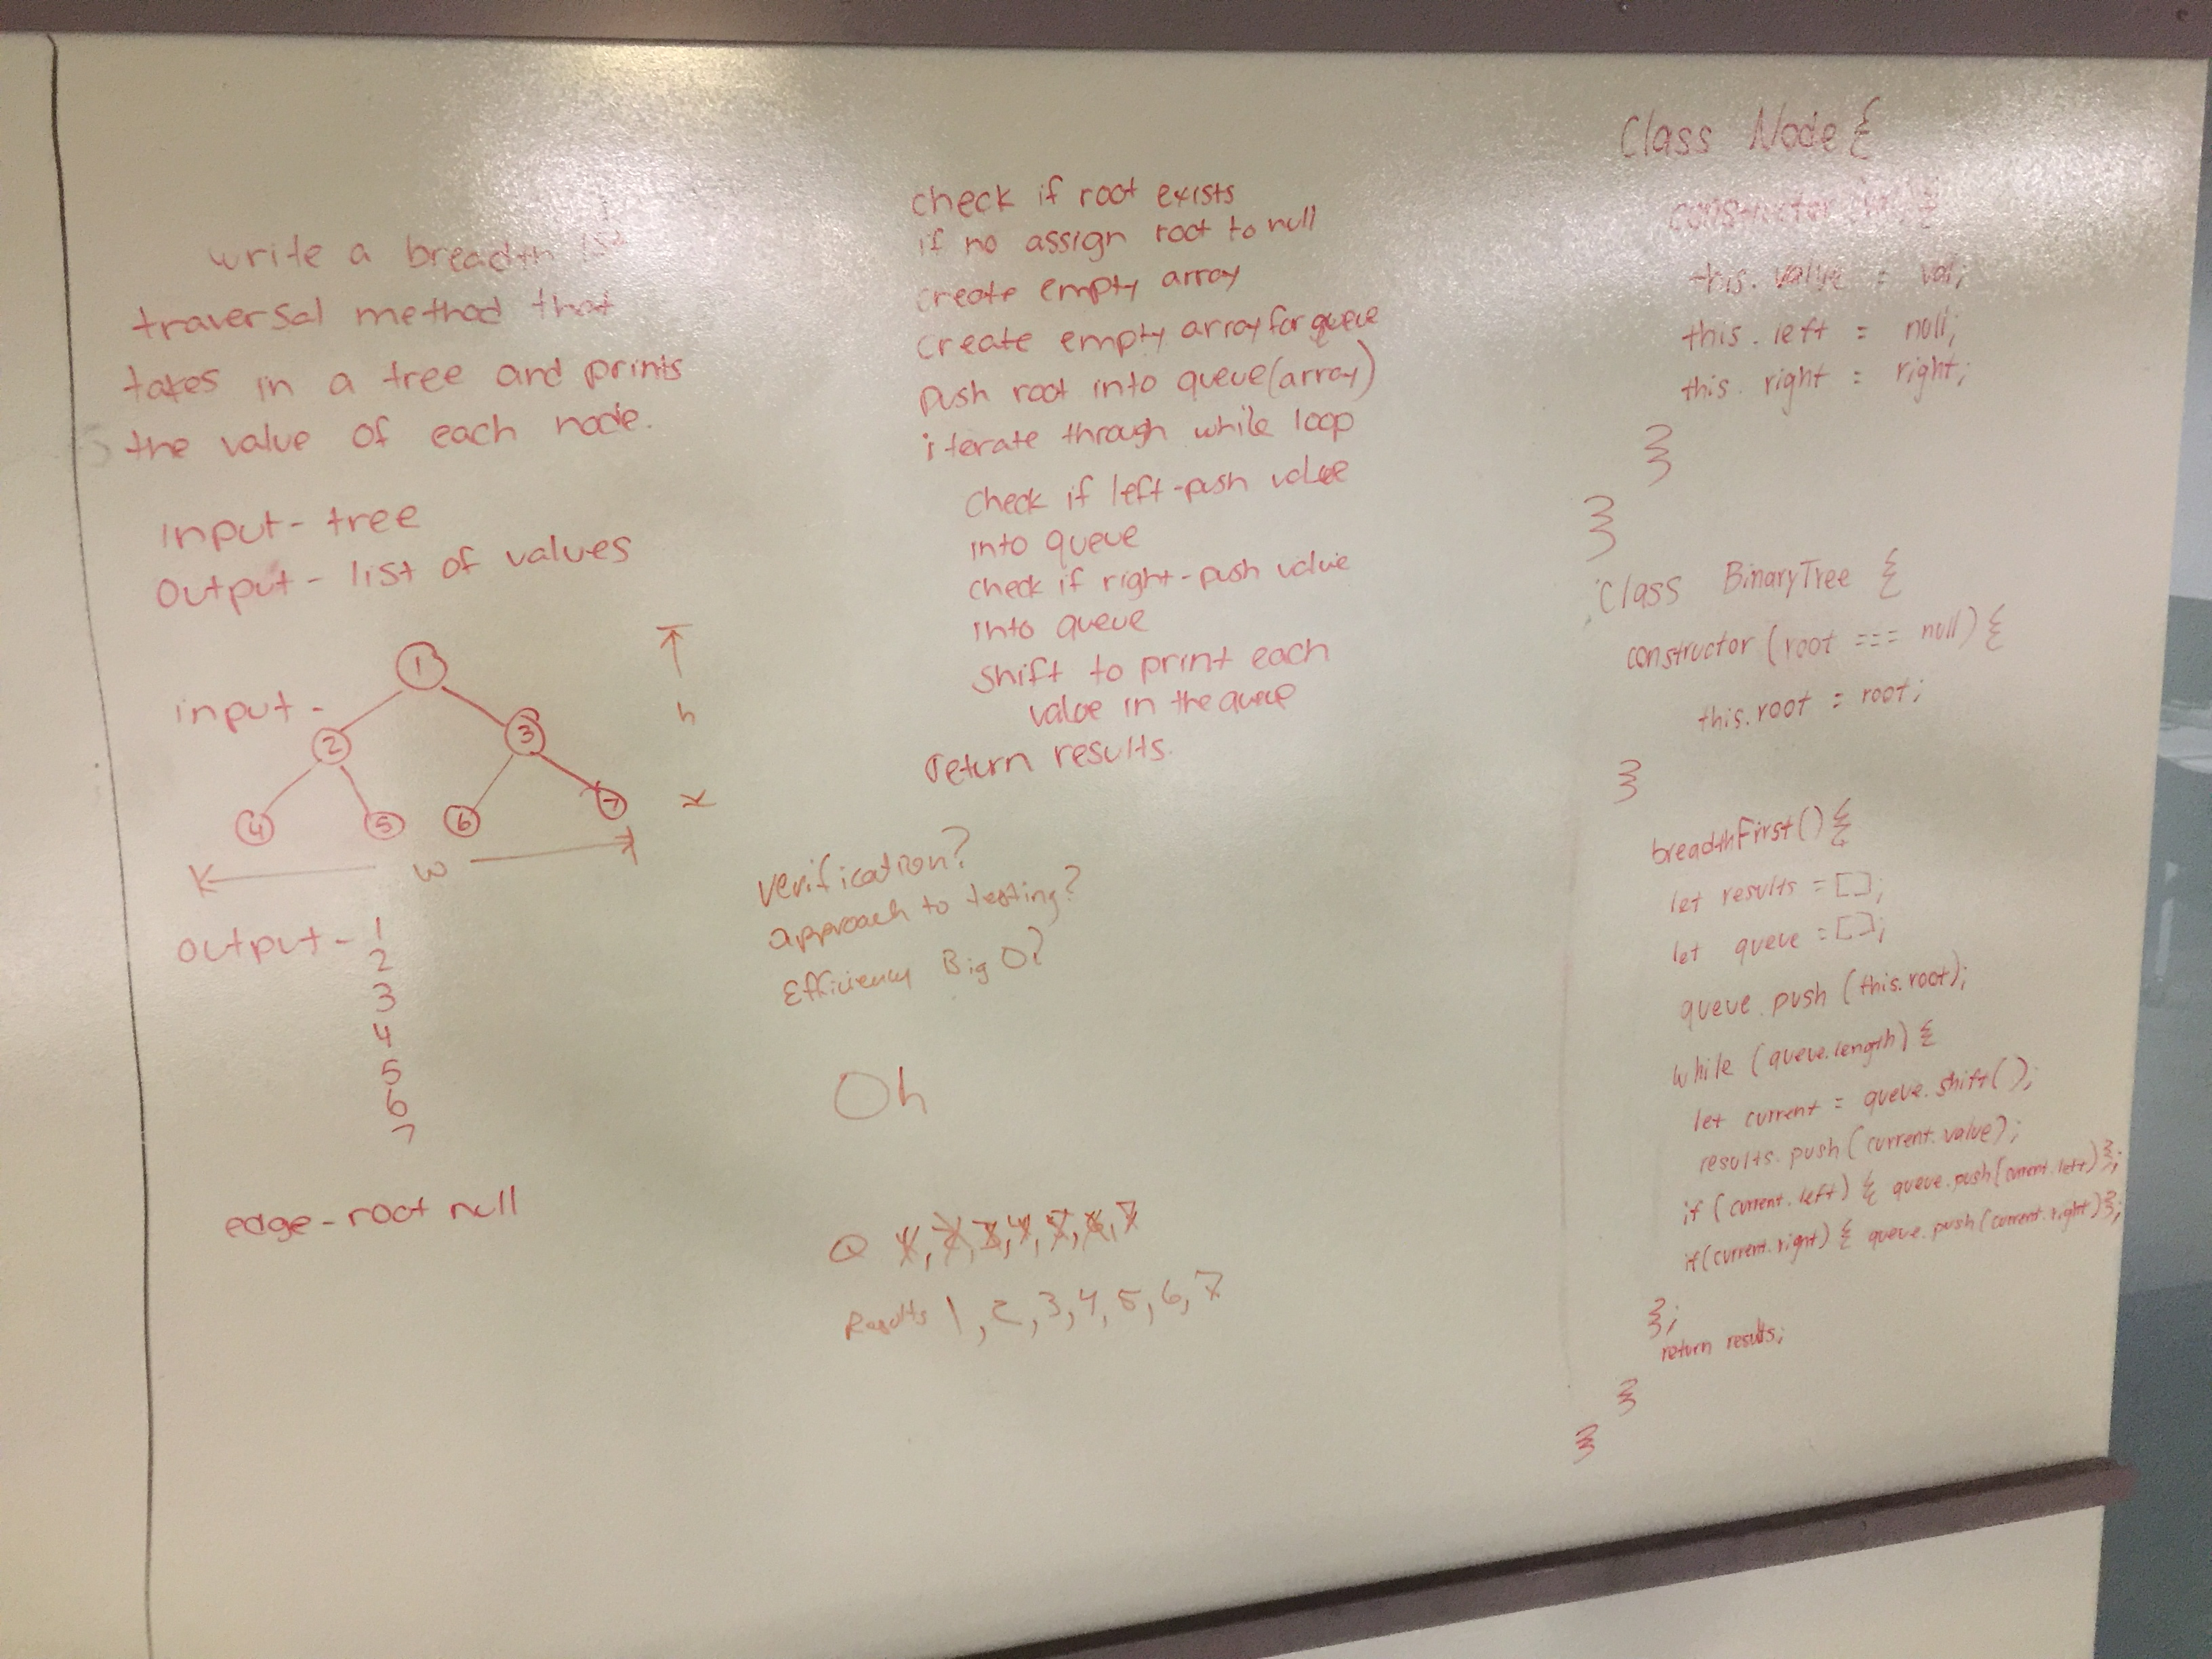 write a breadth 1st
traversal method that
takes in a tree and prints
the value of each node.
Input - tree
Output - list of values
input -
1
2
3
4
5
6
7
h
w
output - 1
2
3
4
5
6
7
edge - root null
check if root exists
if no assign root to null
create empty array
create empty array for queue
push root into queue (array)
iterate through while loop
check if left - push value
into queue
check if right - push value
into queue
shift to print each
value in the queue
return results.
verification?
approach to testing?
Efficiency Big O?
Oh
Q 1, 2, 3, 4, 5, 6, 7
Results 1, 2, 3, 4, 5, 6, 7
Class Node {
constructor {
this. value = val;
this. left = null;
this. right = right;
}
}
Class BinaryTree {
constructor (root === null) {
this.root = root;
}
breadthFirst() {
let results = [];
let queue = [];
queue. push (this.root);
while (queue.length) {
let current = queue. shift();
results. push (current. value);
if (current. left) { queue. push (current. left) };
if (current. right) { queue. push (current. right) };
};
return results;
}
}